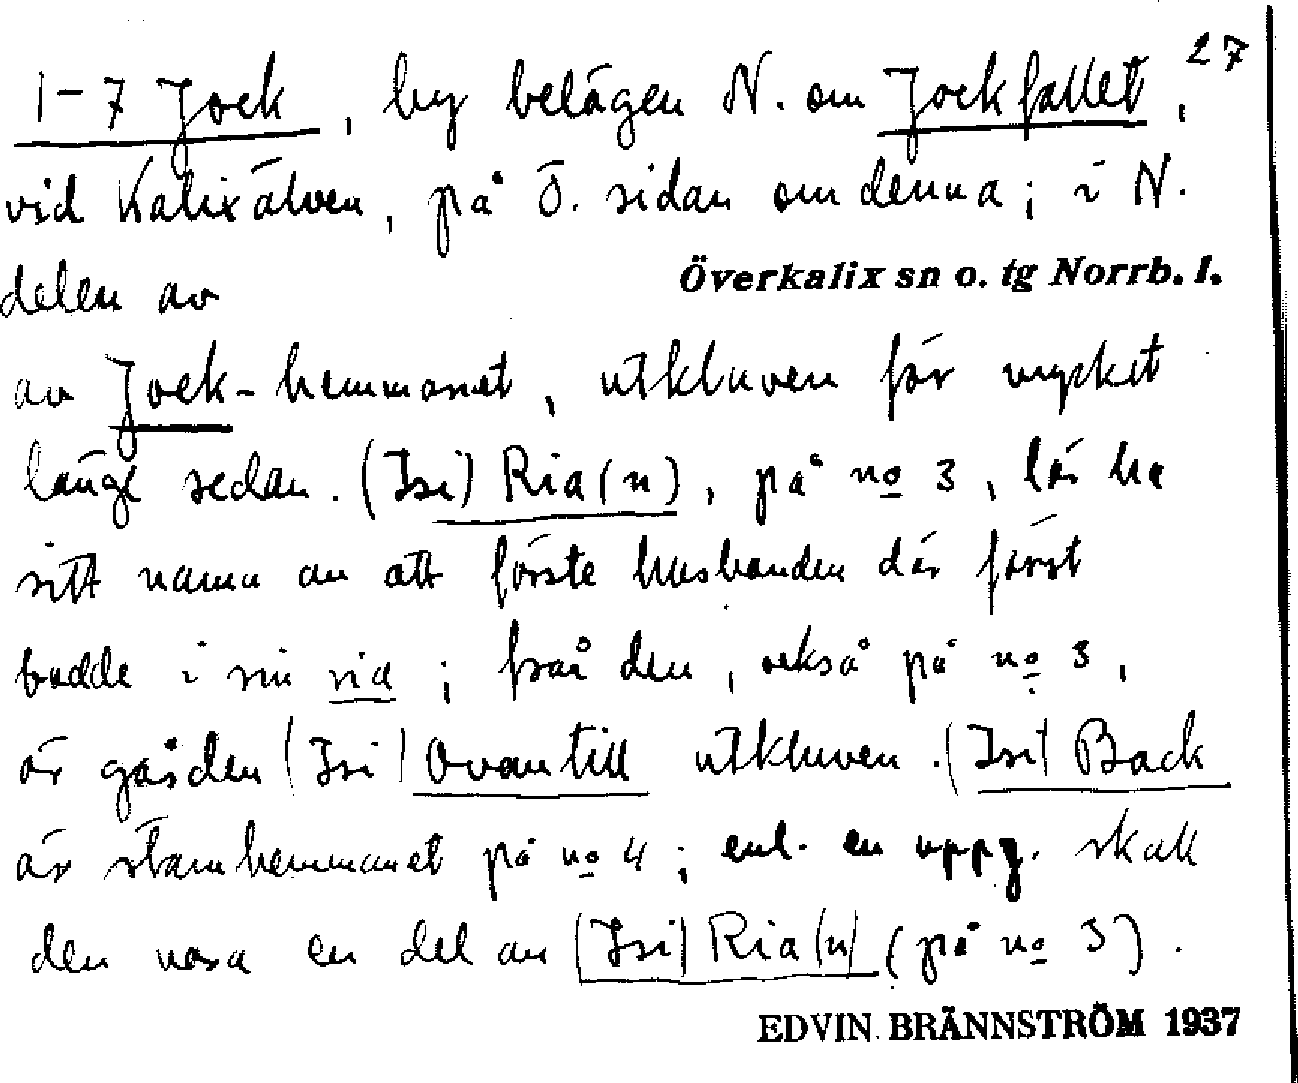 27
1-7 Jock, by belägen N. om Jockfallet,
vid Kalixälven, på Ö. sidan om denna; i N.
Överkalix sn o. tg Norrb. l.
delen av
av Jock-hemmanet, utkluven för mycket
länge sedan. (Isi) Ria(n), på no 3, lär ha
sitt namn av att förste husbonden där först
bodde i sin ria; från den, också på no 3,
är gården (Isi) Ovantill utkluven. (Isi) Back
är stamhemmanet på no 4; enl. en uppg. skall
den vara en del av (Isi) Ria(n) (på no 3).
EDVIN BRÄNNSTRÖM 1937